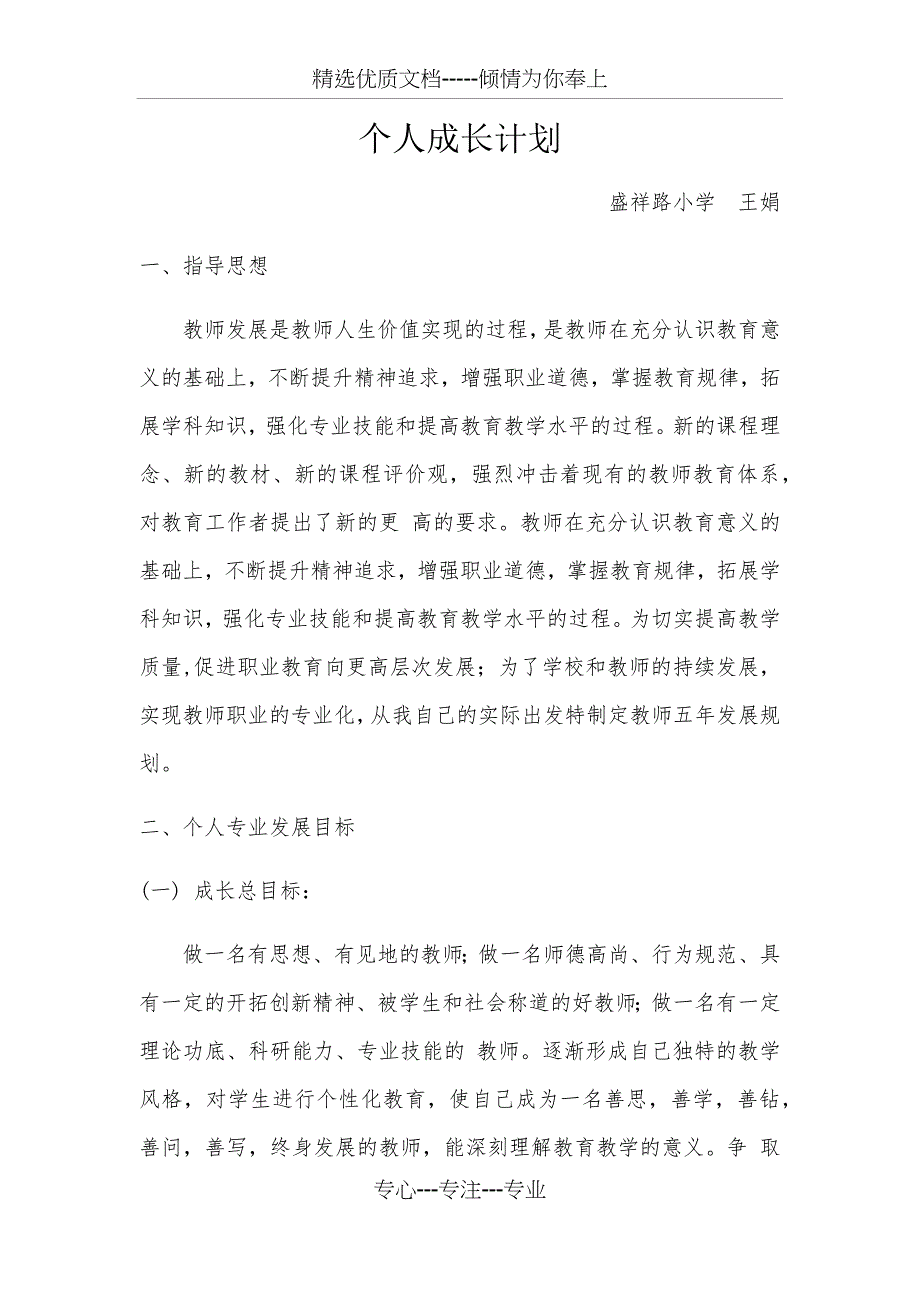 精选优质文档-----倾情为你奉上
个人成长计划
盛祥路小学　王娟
一、指导思想
教师发展是教师人生价值实现的过程，是教师在充分认识教育意
义的基础上，不断提升精神追求，增强职业道德，掌握教育规律，拓
展学科知识，强化专业技能和提高教育教学水平的过程。新的课程理
念、新的教材、新的课程评价观，强烈冲击着现有的教师教育体系，
对教育工作者提出了新的更 高的要求。教师在充分认识教育意义的
基础上，不断提升精神追求，增强职业道德，掌握教育规律，拓展学
科知识，强化专业技能和提高教育教学水平的过程。为切实提高教学
质量,促进职业教育向更高层次发展；为了学校和教师的持续发展，
实现教师职业的专业化，从我自己的实际出发特制定教师五年发展规
划。
二、个人专业发展目标
(一) 成长总目标：
做一名有思想、有见地的教师；做一名师德高尚、行为规范、具
有一定的开拓创新精神、被学生和社会称道的好教师；做一名有一定
理论功底、科研能力、专业技能的 教师。逐渐形成自己独特的教学
风格，对学生进行个性化教育，使自己成为一名善思，善学，善钻，
善问，善写，终身发展的教师，能深刻理解教育教学的意义。争 取
专心---专注---专业